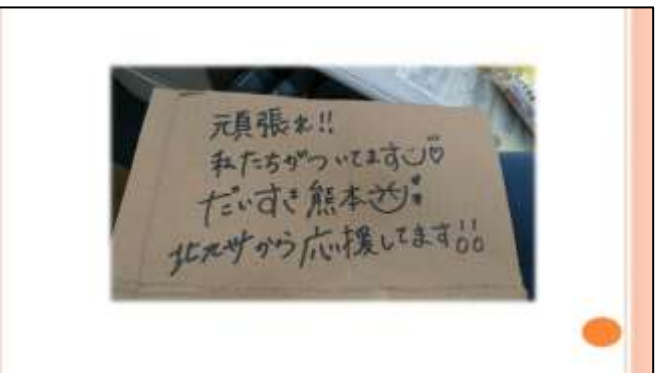 頑張れ!!
私たちがついてます
だいすき熊本
北九州から応援してます!!